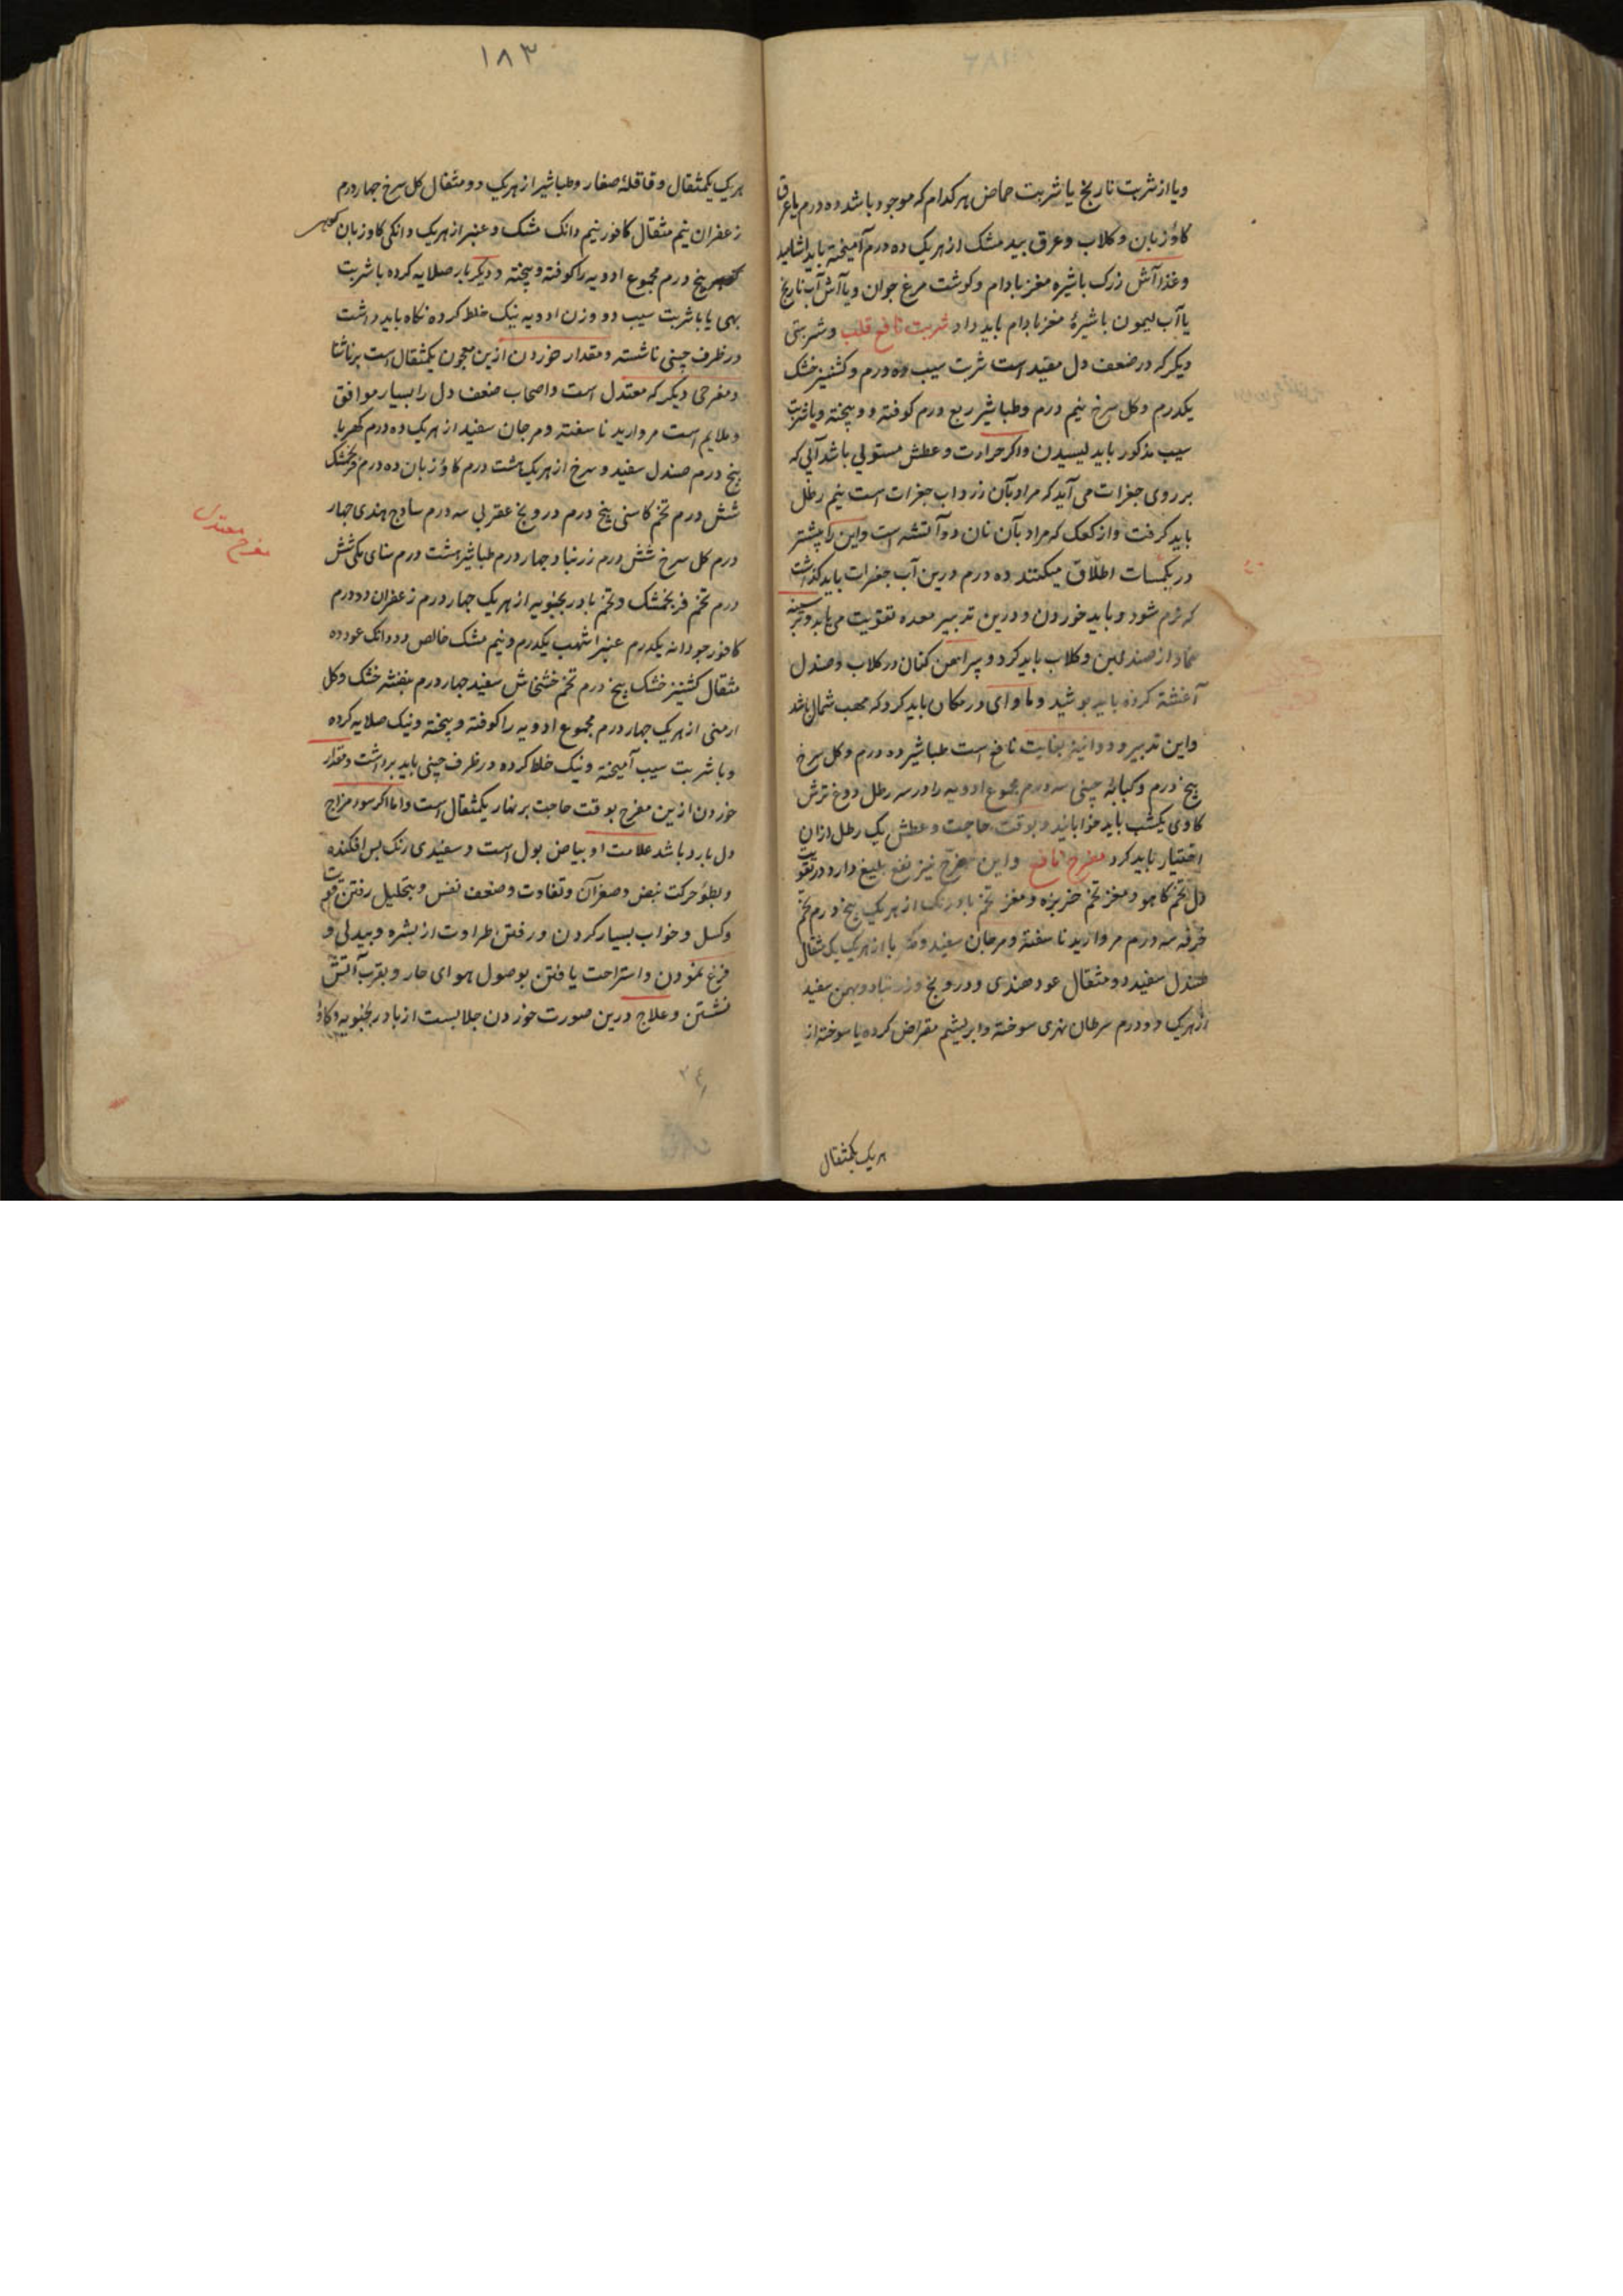 ویا از شربت نارنج یا شربت حماض هرکدام که موجود باشد ده درم با عرق
کاوزبان و کلاب و عرق بید مشک از هریک ده درم آمیخته باید آشامید
و غذا آش زرک با شیره مغز بادام و کوشت مرغ جوان ویا آش آب نارنج
یا آب لیمون با شیرۀ مغز بادام باید داد شربت نافع قلب و شربتی
دیکر که در ضعف دل مفید است شربت سیب ده درم و کشنیز خشک
یکدرم و کل سرخ نیم درم و طباشیر ربع درم کوفته و بیخته و با شربت
سیب مذکور باید لیسیدن و اکر حرارت و عطش مستولی باشد آبی که
بر روی جغرات می آید که مراد بآن زرداب جغرات است نیم رطل
باید کرفت و از کعک که مراد بآن نان دو آتشه است و این را پیشتر
در بکسمات اطلاق میکنند ده درم درین آب جغرات باید کذاشت
که نرم شود و باید خوردن و درین تدبیر معده تقویت می یابد و بر سینه
ضماد از صندلین و کلاب باید کرد و پیراهن کتان در کلاب و صندل
آغشته کرده باید پوشید و ماوای در مکان باید کرد که مهب شمال باشد
و این تدبیر و دوا نیز بغایت نافع است طباشیر ده درم و کل سرخ
پنج درم و کبابۀ چینی سه درم مجموع ادویه را در سه رطل دوغ ترش
کاوی یکشب باید خوابانید و بوقت حاجت و عطش یک رطل ازان
اختیار باید کرد مفرح نافع و این مفرح نیز نفع بلیغ دارد در تقویت
دل تخم کاهو و مغز تخم خربزه و مغز تخم بادرنک از هریک پنج درم تخم
خرفه سه درم مروارید ناسفته و مرجان سفید و کهربا از هریک یک مثقال
صندل سفید دو مثقال عود هندی و درونج و زرنباد و بهمن سفید
از هریک دو درم سرطان نهری سوخته و ابریشم مقراض کرده یا سوخته از
هریک یکمثقال
۱۸۳
هریک یکمثقال و قاقلۀ صغار و طباشیر از هریک دو مثقال کل سرخ چهار درم
زعفران نیم مثقال کافور نیم دانک مشک و عنبر از هریک دانکی کاوزبان
پنج درم مجموع ادویه را کوفته و بیخته و دیکر بار صلایه کرده با شربت
بهی یا با شربت سیب دو وزن ادویه نیک خلط کرده نکاه باید داشت
در ظرف چینی ناشسته و مقدار خوردن ازین معجون یکمثقال است بر ناشتا
و مفرحی دیکر که معتدل است و اصحاب ضعف دل را بسیار موافق
و ملایم است مروارید ناسفته و مرجان سفید از هریک ده درم کهربا
پنج درم صندل سفید و سرخ از هریک هشت درم کاوزبان ده درم فرنجمشک
شش درم تخم کاسنی پنج درم درونج عقربی سه درم ساذج هندی چهار
درم کل سرخ شش درم زرنباد چهار درم طباشیر هشت درم سنای مکی شش
درم تخم فرنجمشک و تخم بادرنجبویه از هریک چهار درم زعفران دو درم
کافور جودانه یکدرم عنبر اشهب یکدرم و نیم مشک خالص دو دانک عود ده
مثقال کشنیز خشک پنج درم تخم خشخاش سفید چهار درم بنفشه خشک و کل
ارمنی از هریک چهار درم مجموع ادویه را کوفته و بیخته و نیک صلایه کرده
و با شربت سیب آمیخته و نیک خلط کرده در ظرف چینی باید برداشت و مقدار
خوردن ازین مفرح بوقت حاجت بر نهار یکمثقال است و اما اکر سوء مزاج
دل بارد باشد علامت او بیاض بول است و سفیدی رنک بس افکنده
و بطوء حرکت نبض و صغر آن و تفاوت و ضعف نفس و بتحلیل رفتن قوت
و کسل و خواب بسیار کردن و رفتن طراوت از بشره و بیدلی و
فزع نمودن و استراحت یافتن بوصول هوای حار و بقرب آتش
نشستن و علاج درین صورت خوردن جلابست از بادرنجبویه و کاو
مفرح معتدل